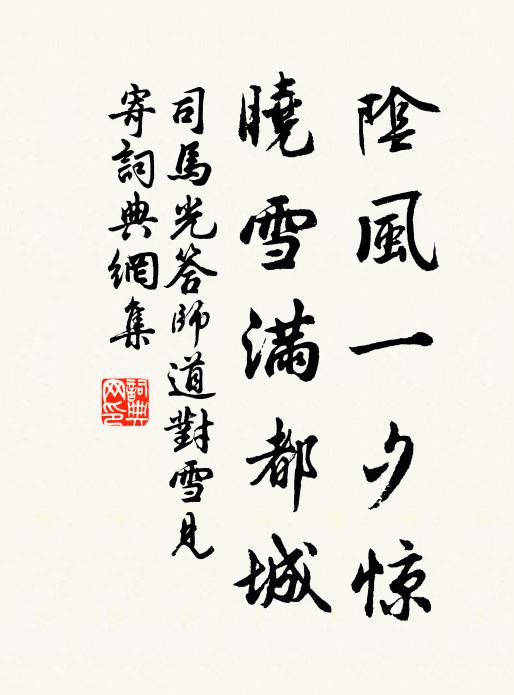 陰風一夕惊
曉雪滿都城
司馬光答師道對雪見
寄詞典網集
詞典
网印